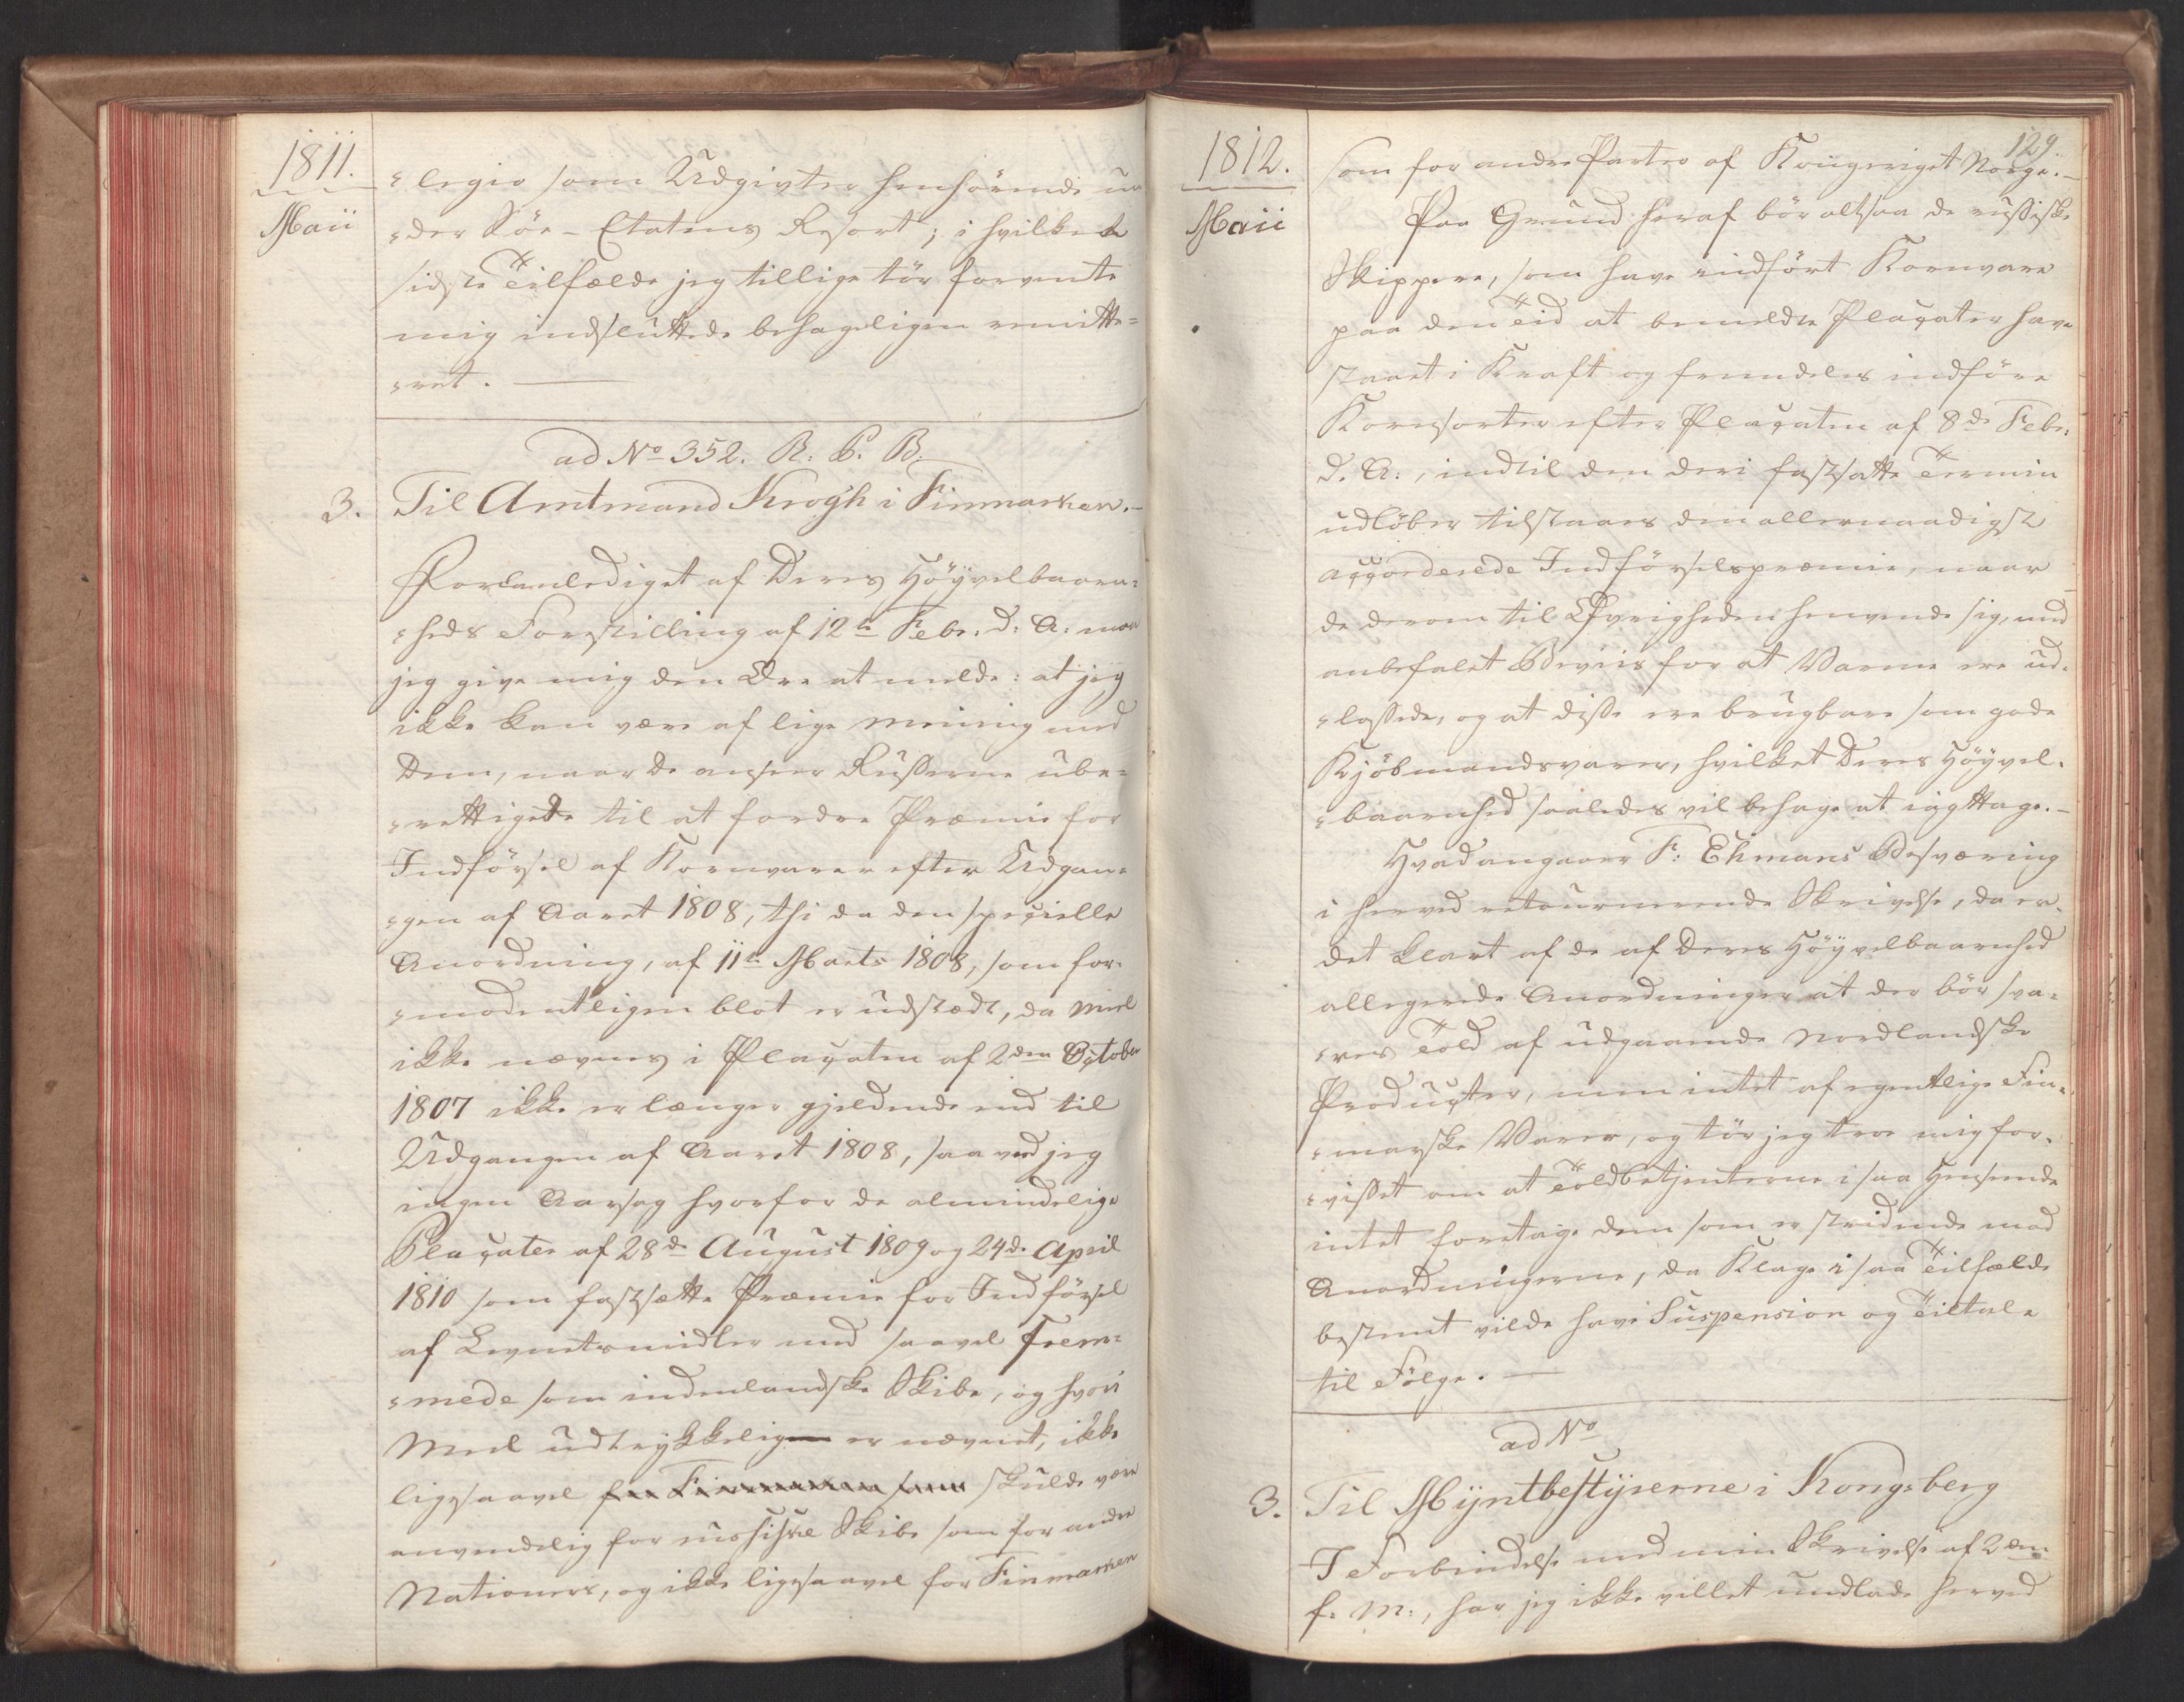 1811.
Maii
legio som Udgivter henhörende un-
der Söe-Etatens Resort; i hvilket
sidste Tilfælde jeg tillige tör forvente
mig indsluttede behageligen remitte=
ret.
ad No 352. R: P. B:
3.
Til Amtmand Krogh i Finmarken.
Foranlediget af Deres Höÿvelbaaren=
heds Forestilling af 12te Febr: d: A: maa
jeg give mig den Ære at melde: at jeg
ikke kan være af lige Meening med
Dem, naar De anseer Russerne ube=
rettigede til at fordre Præmie for
Indförsel af Kornvarer efter Udgan=
gen af Aaret 1808, thi da den specielle
Anordning, af 11te Marts 1808, som for=
modentligen blot er udstædt, da Meel
ikke nævnes i Placaten af 2den October
1807 ikke er længer gjeldende end til
Udgangen af Aaret 1808, saa veed jeg
ingen Aarsag hvorfor de almindelige
Placater af 28de August 1809 og 24d. April
1810 som fastsætte Præmie for Indförsel
af Levnetsmidler med saavel frem=
mede som indenlandske Skibe, og hvori
Meel udtrykkelig er nævnet, ikke
ligesaavel for Finmarken som skulde være
anvendelig for russiske Skibe som for andre
Nationers, og ikke ligesaavel for Finmarken
1812.
Maii
129.
som for andre Parter af Kongeriget Norge.
Paa Grund heraf bör altsaa de russiske
Skippere, som have indfört Kornvare
paa den Tid at bemeldte Placater have
staaet i Kraft og fremdeles indföre
Kornsorter efter Placaten af 8de Febr:
d. A:, indtil den deri fastsatte Termin
udlöber tilstaaes den allernaadigst
accorderede Indförselspræmie, naar
de derom til Övrigheden henvende sig, med
anbefalet Beviis for at Varene ere ud=
lossede, og at disse ere brugbare som gode
Kjöbmandsvarer, hvilket Deres Höÿvel=
baarenhed saaledes vil behage at iagttage.
Hvad angaaer F: Ehmans Besværing
i herved retournerende Skrivelse, da er
det klart af de af Deres Höÿvelbaarenhed
allegerede Anordninger at der bör sva=
res Told af udgaaende Nordlandske
Producter, men intet af egentlige Fin=
marske Varer, og tör jeg troe mig for=
visset om at Toldbetjenterne i saa Henseende
intet foretage dem som er stridende mod
Anordningerne, da Klage i saa Tilfælde
bestemt vilde have Suspension og Tiltale
til Fölge.
ad No
3.
Til Mÿntbestÿrerne i Kongsberg
I Forbindelse med min Skrivelse af 2den
f. M:, har jeg ikke villet undlade herved